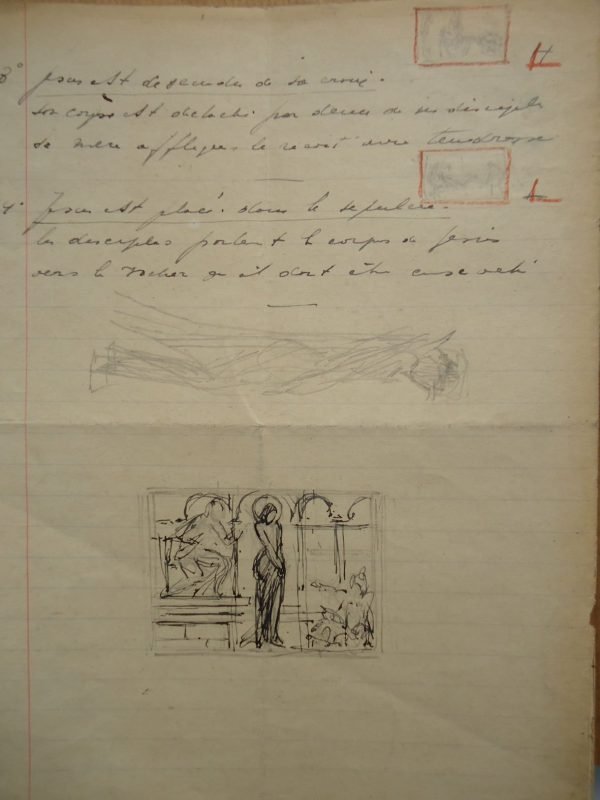 3° Jesus est descendu de sa croix.
son corps est detaché par deux de ses disciples
sa mere affligee le recoit avec tendresse
4° Jesus est placé dans le sepulcre.
les disciples portent le corps de Jesus
vers le rocher ou il doit être enseveli